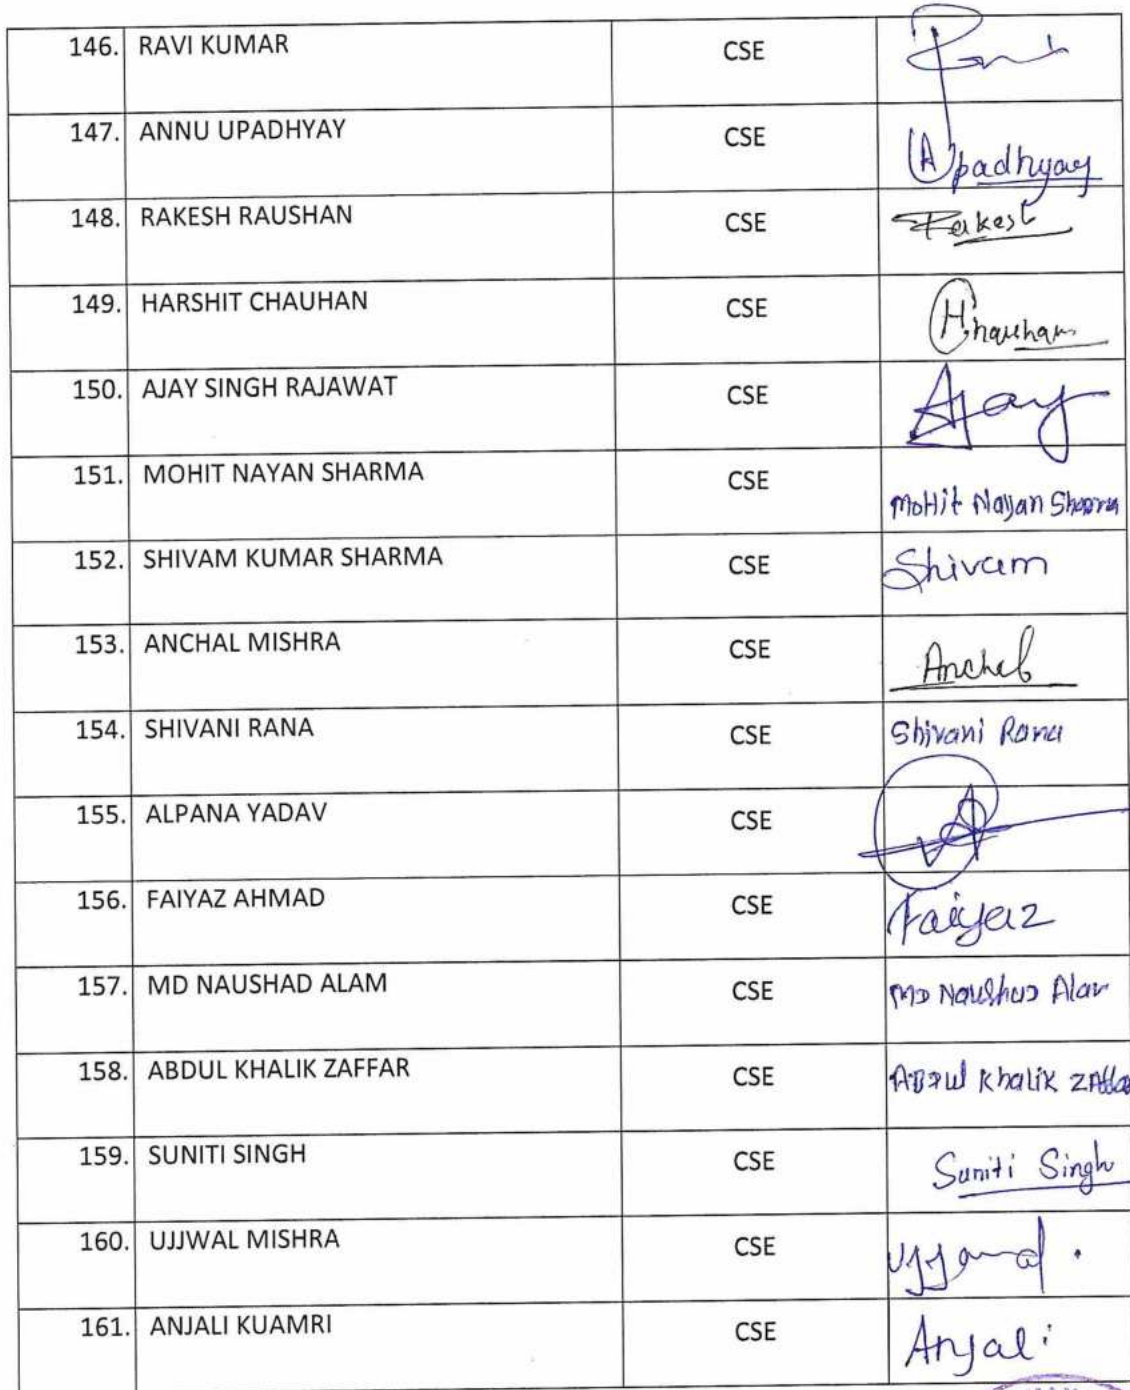 146. RAVI KUMAR CSE Ravi
147. ANNU UPADHYAY CSE AUpadhyay
148. RAKESH RAUSHAN CSE Rakesh
149. HARSHIT CHAUHAN CSE HChauhan
150. AJAY SINGH RAJAWAT CSE Ajay
151. MOHIT NAYAN SHARMA CSE MoHit Nayan Sharma
152. SHIVAM KUMAR SHARMA CSE Shivam
153. ANCHAL MISHRA CSE Anchal
154. SHIVANI RANA CSE Shivani Rana
155. ALPANA YADAV CSE
156. FAIYAZ AHMAD CSE Faiyaz
157. MD NAUSHAD ALAM CSE MD Naushad Alam
158. ABDUL KHALIK ZAFFAR CSE ABDUl Khalik Zaffa
159. SUNITI SINGH CSE Suniti Singh
160. UJJWAL MISHRA CSE
161. ANJALI KUAMRI CSE Anjali